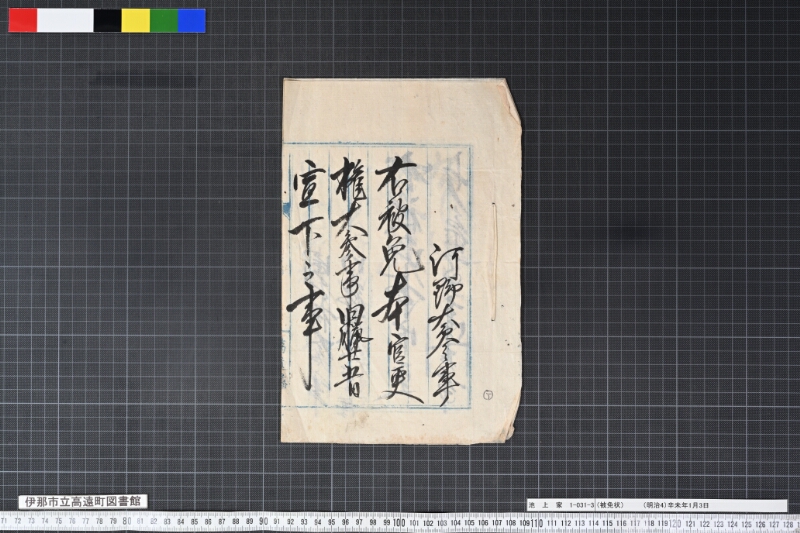 河野大参事
右被免本官更
権大参事旧臘廿五日
宣下之事
伊那市立高遠町図書館
池上家 1-031-3(被免状) (明治4)辛未年1月3日